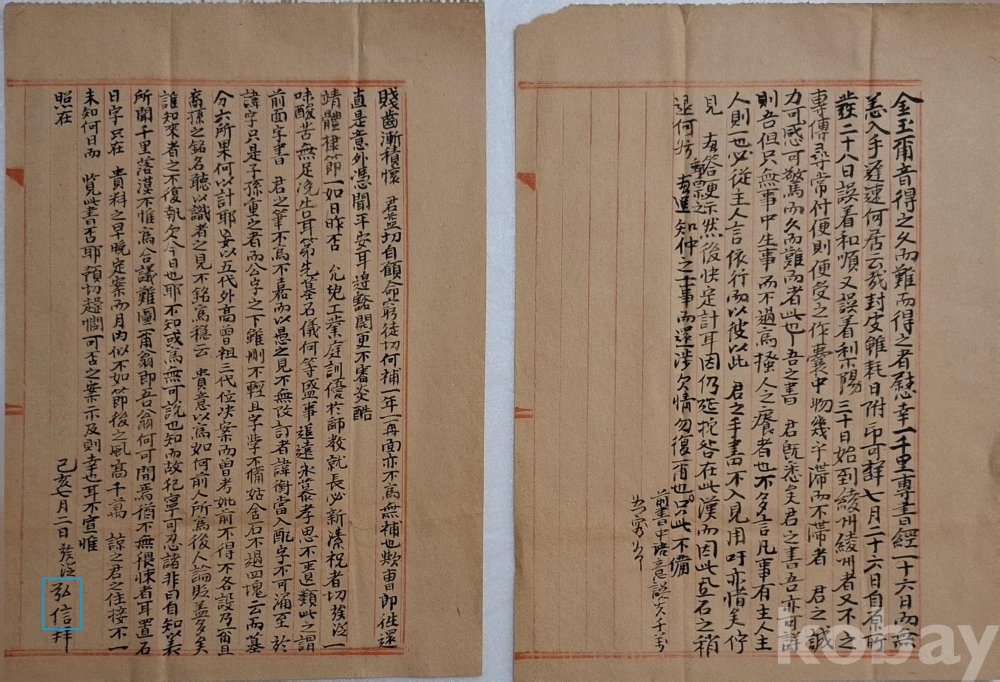 賤齒漸積懷 君益切自顧命窮徒切何補年一再面亦不爲無補也歟曺郎往還
直是意外憑聞平安耳邇豁閡更不審炎酷
靖體棣節一如日昨否 允兒工業庭訓優於師教就長必新溱祝者切發泣一
味酸苦無足浼告耳第先墓石儀何等盛事追遠永慕孝思不匱類此之謂
前面字書 君之筆不爲不嘉而以愚之見不無改訂者諱銜當入配字不可涌至於
諱字只是子孫重之者而今字之下雖刪不輕且子學不備姑舍石不過四塊云而墓
分六所果何以計耶妄以五代外高曾祖三代位決案而曾考妣前不得不各設乃爾且
裔孫之銘名聽以識者之見不銘爲穩云 貴意以爲如何前人所爲後人論貶盖多矣
誰知來者之不復執欠今日也耶不知或爲無可說也知而故犯寧可忍諸非曰自知以表
所聞千里落漠不惟爲合議難圖二甫翁即吾翁何可間焉猶不無猥悚者耳置石
日字只在 貴料之早晚定案而月內似不如節後之風高千萬 諒之君之住接不一
未知何日而 覽此書否耶預切趨憫可否之案示及則幸也耳不宣惟
照在
己亥七月二日 發泣 弘信拜
金玉爾音得之久而難而得之者慰幸一千里專書經二十六日而無
恙入手遲速何居云哉封皮雖耗日附印可詳七月二十六日自原所
發二十八日誤着和順又誤着利陽三十日始到綾州綾州者又不之
專傳尋常付便則便受之作囊中物幾乎滯而不滯者 君之誠
力可感可驚而久而難而者此也吾之書 君既悉矣君之書吾亦可詳
則吾但只無事中生事而不過爲搔人之癢者也不多言凡事有主人主
人則一也必從主人言依行而以彼以此 君之手書田不入見用吁亦惜矣佇
見 有答便示然後快定計耳因仍延挖答在此漢而因此登石之稍
退何妨 重漯之 有進知仲之士事而還涉欠情勿復有也只此不備
前書中語意誤炎千万